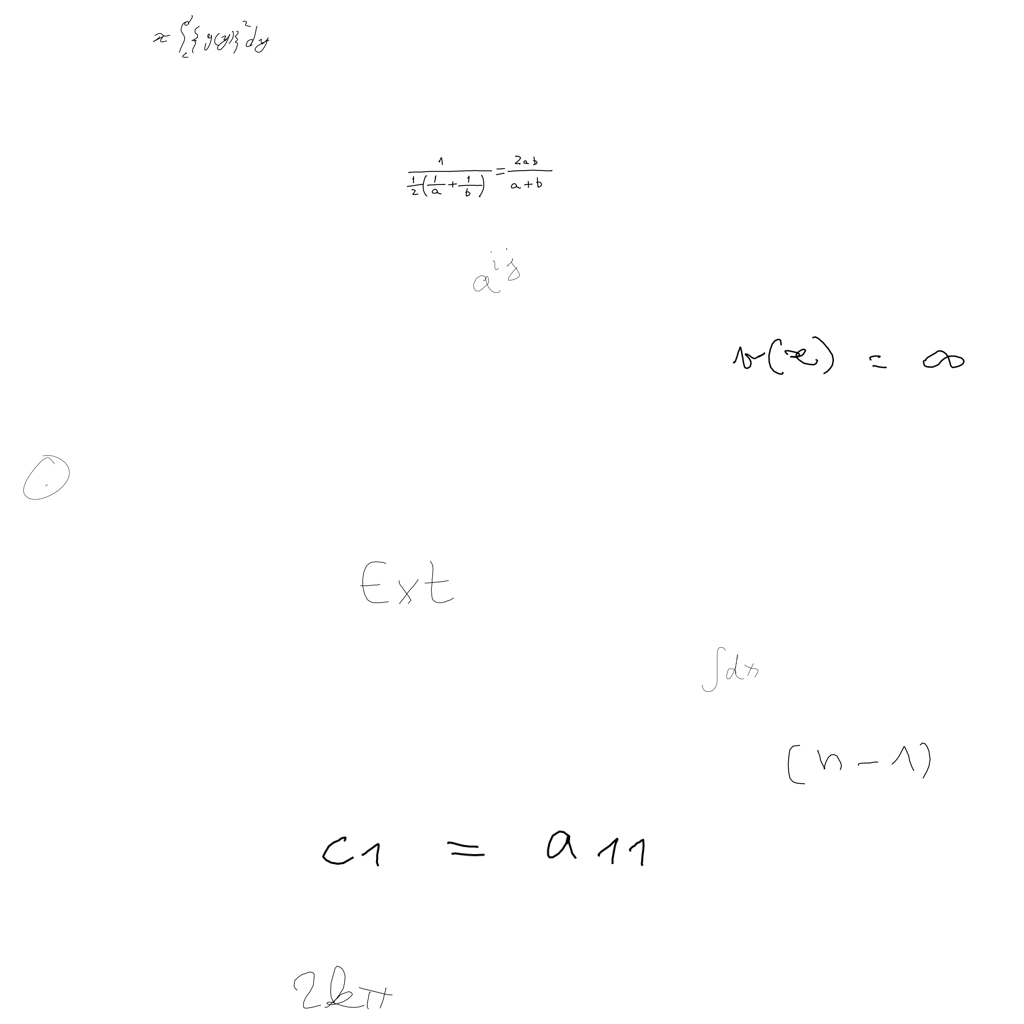 x ∫_c^d {g(y)}^2 dy
\frac{1}{\frac{1}{2}(\frac{1}{a}+\frac{1}{b})} = \frac{2ab}{a+b}
a^{ij}
v(x) = ∞
⊙
Ext
∫dx
(n-1)
c1 = a11
2kπ